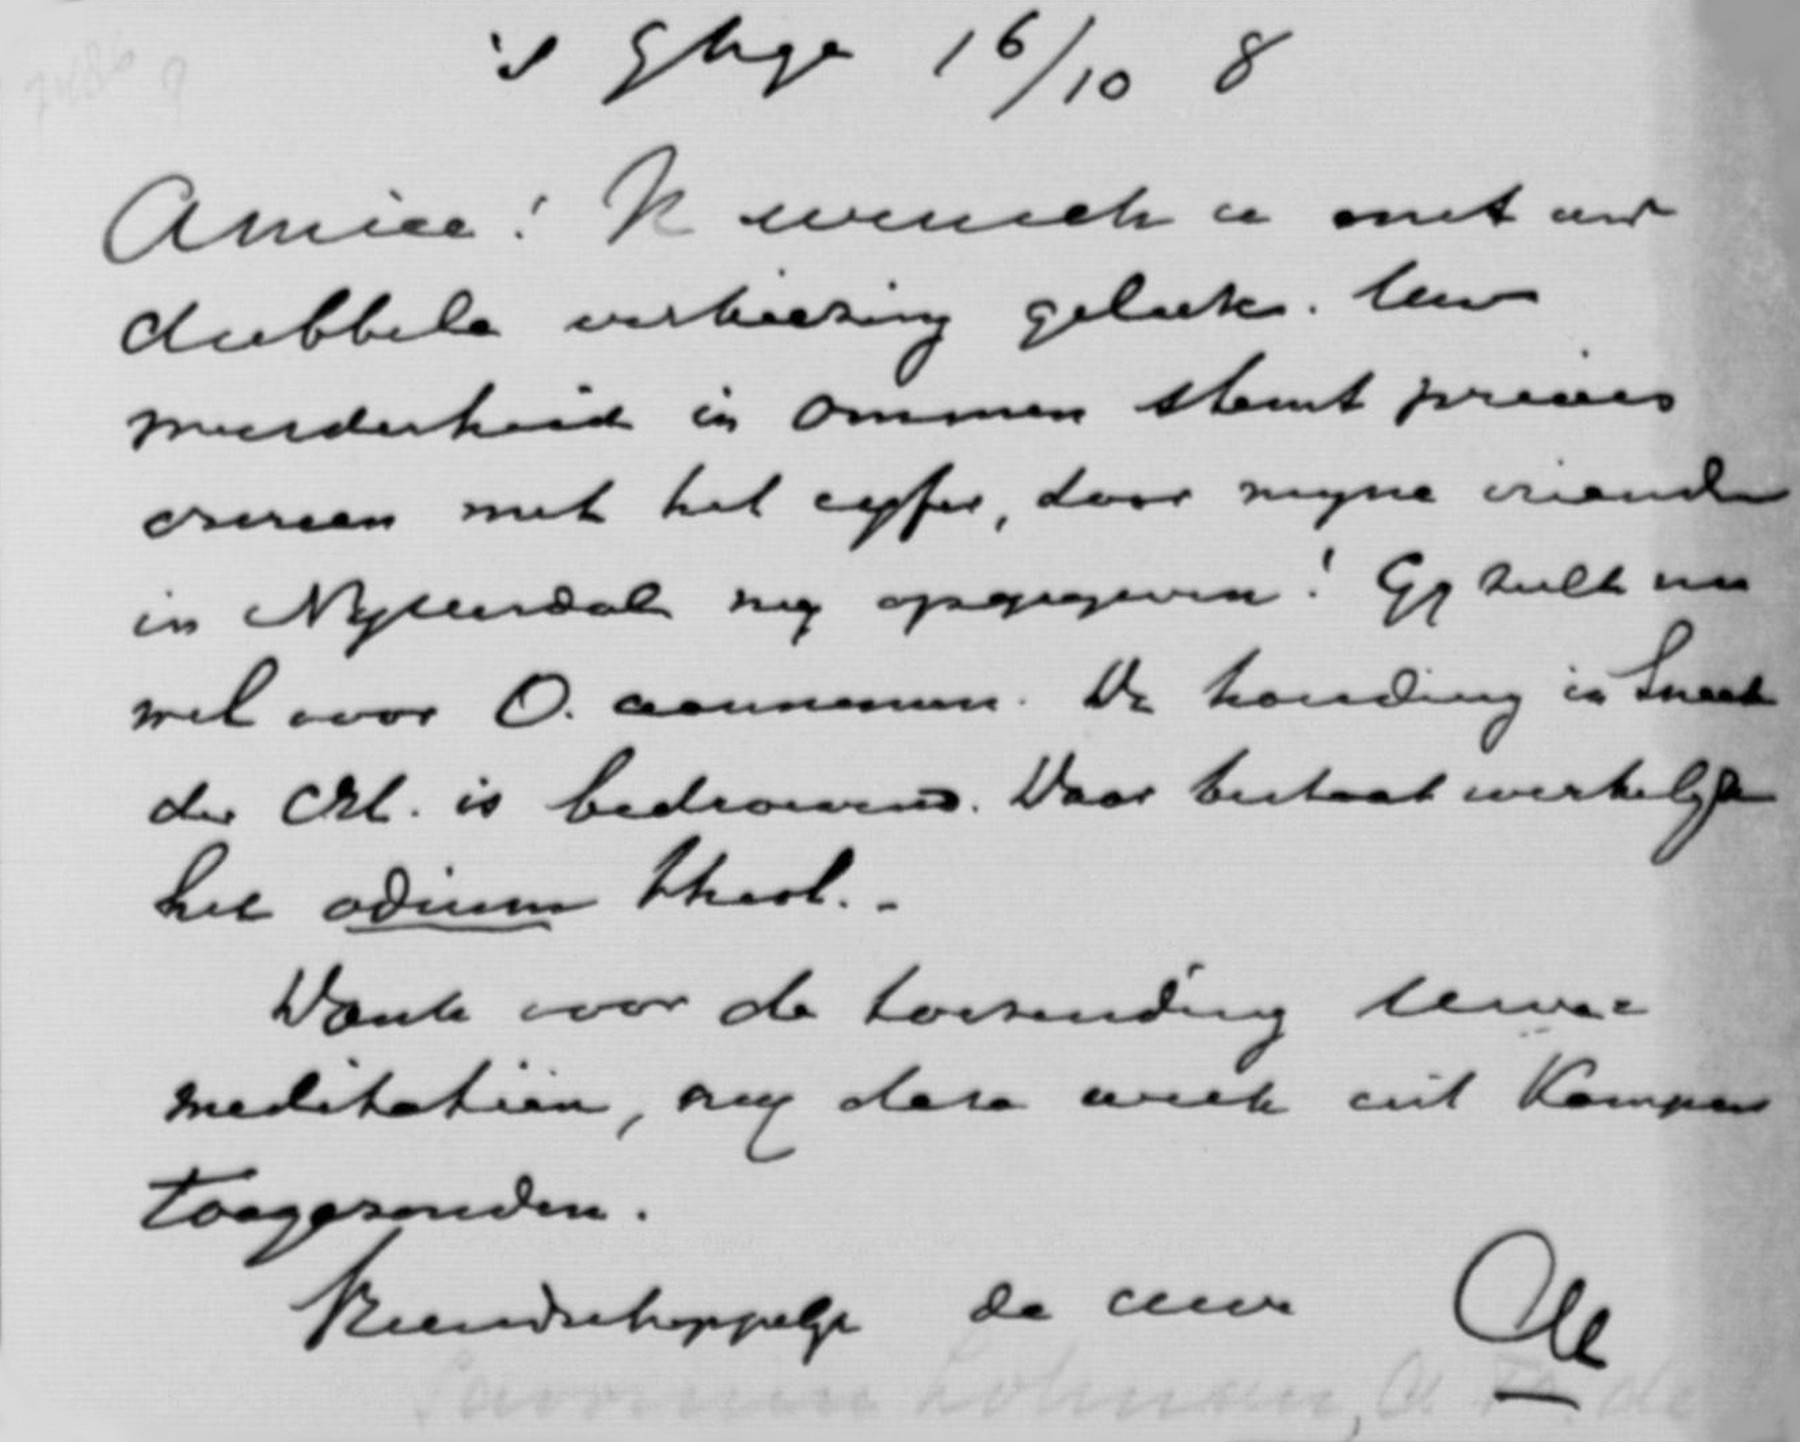 's Ghge 16/10 8
Amice! Ik wensch u met uw
dubbele verkiezing geluk. Uw
meerderheid in Ommen stemt precies
overeen met het cyfer, door myne vrienden
in Nyverdal my opgegeven! Gy zult nu
wel voor O. aannemen. De houding in Sneek
der is bedroevend. Daar bestaat werkelyk
het odium theol. -
Dank voor de toezending Uwer
meditatiën, my deze week uit Kampen
toegezonden.
Vriendschappelyk de uwe
Savornin Lohman, A F. de